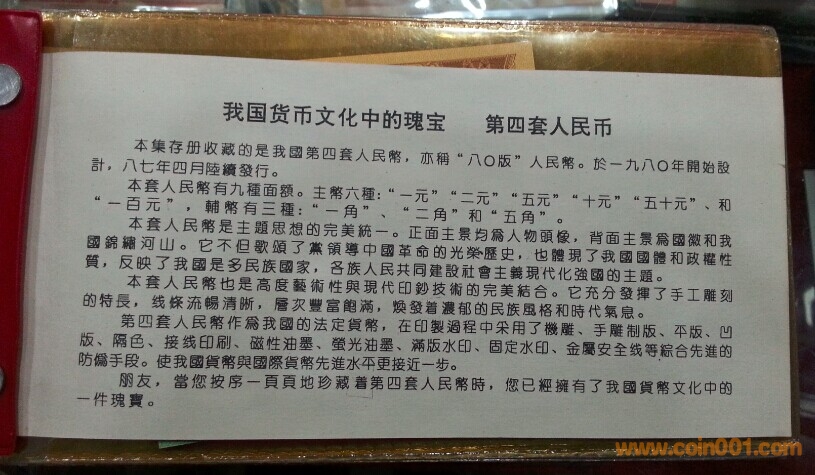 我国货币文化中的瑰宝　　第四套人民币
本集存册收藏的是我國第四套人民幣，亦稱“八〇版”人民幣。於一九八〇年開始設
計，八七年四月陸續發行。
本套人民幣有九種面額。主幣六種：“一元”“二元”“五元”“十元”“五十元”、和
“一百元”，輔幣有三種：“一角”、“二角”和“五角”。
本套人民幣是主題思想的完美統一。正面主景均爲人物頭像，背面主景爲國徽和我
國錦繡河山。它不但歌頌了黨領導中國革命的光榮歷史，也體現了我國國體和政權性
質，反映了我國是多民族國家，各族人民共同建設社會主義現代化強國的主題。
本套人民幣也是高度藝術性與現代印鈔技術的完美結合。它充分發揮了手工雕刻
的特長，线條流暢清晰，層次豐富飽滿，煥發着濃郁的民族風格和時代氣息。
第四套人民幣作爲我國的法定貨幣，在印製過程中采用了機雕、手雕制版、平版、凹
版、隔色、接线印刷、磁性油墨、螢光油墨、滿版水印、固定水印、金屬安全线等綜合先進的
防僞手段。使我國貨幣與國際貨幣先進水平更接近一步。
朋友，當您按序一頁頁地珍藏着第四套人民幣時，您已經擁有了我國貨幣文化中的
一件瑰寶。
www.coin001.com